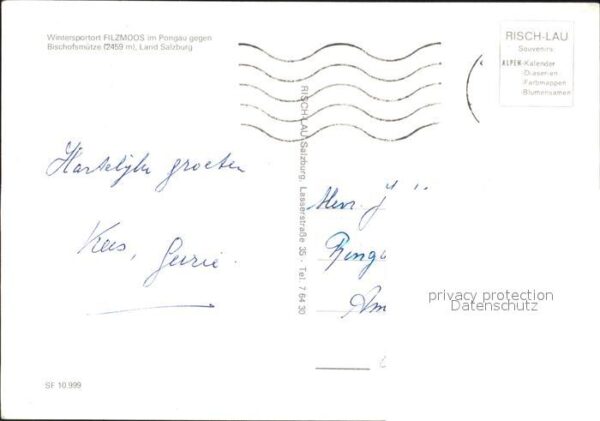 Wintersportort FILZMOOS im Pongau gegen
Bischofsmütze (2459 m), Land Salzburg
RISCH-LAU
Souvenirs
ALPEN-Kalender
-Diaserien
-Farbmappen
-Blumensamen
Hartelijke groeten
Kees,
RISCH-LAU, Salzburg, Lasserstraße 35 · Tel. 7 64 30
privacy protection
Datenschutz
SF 10.999